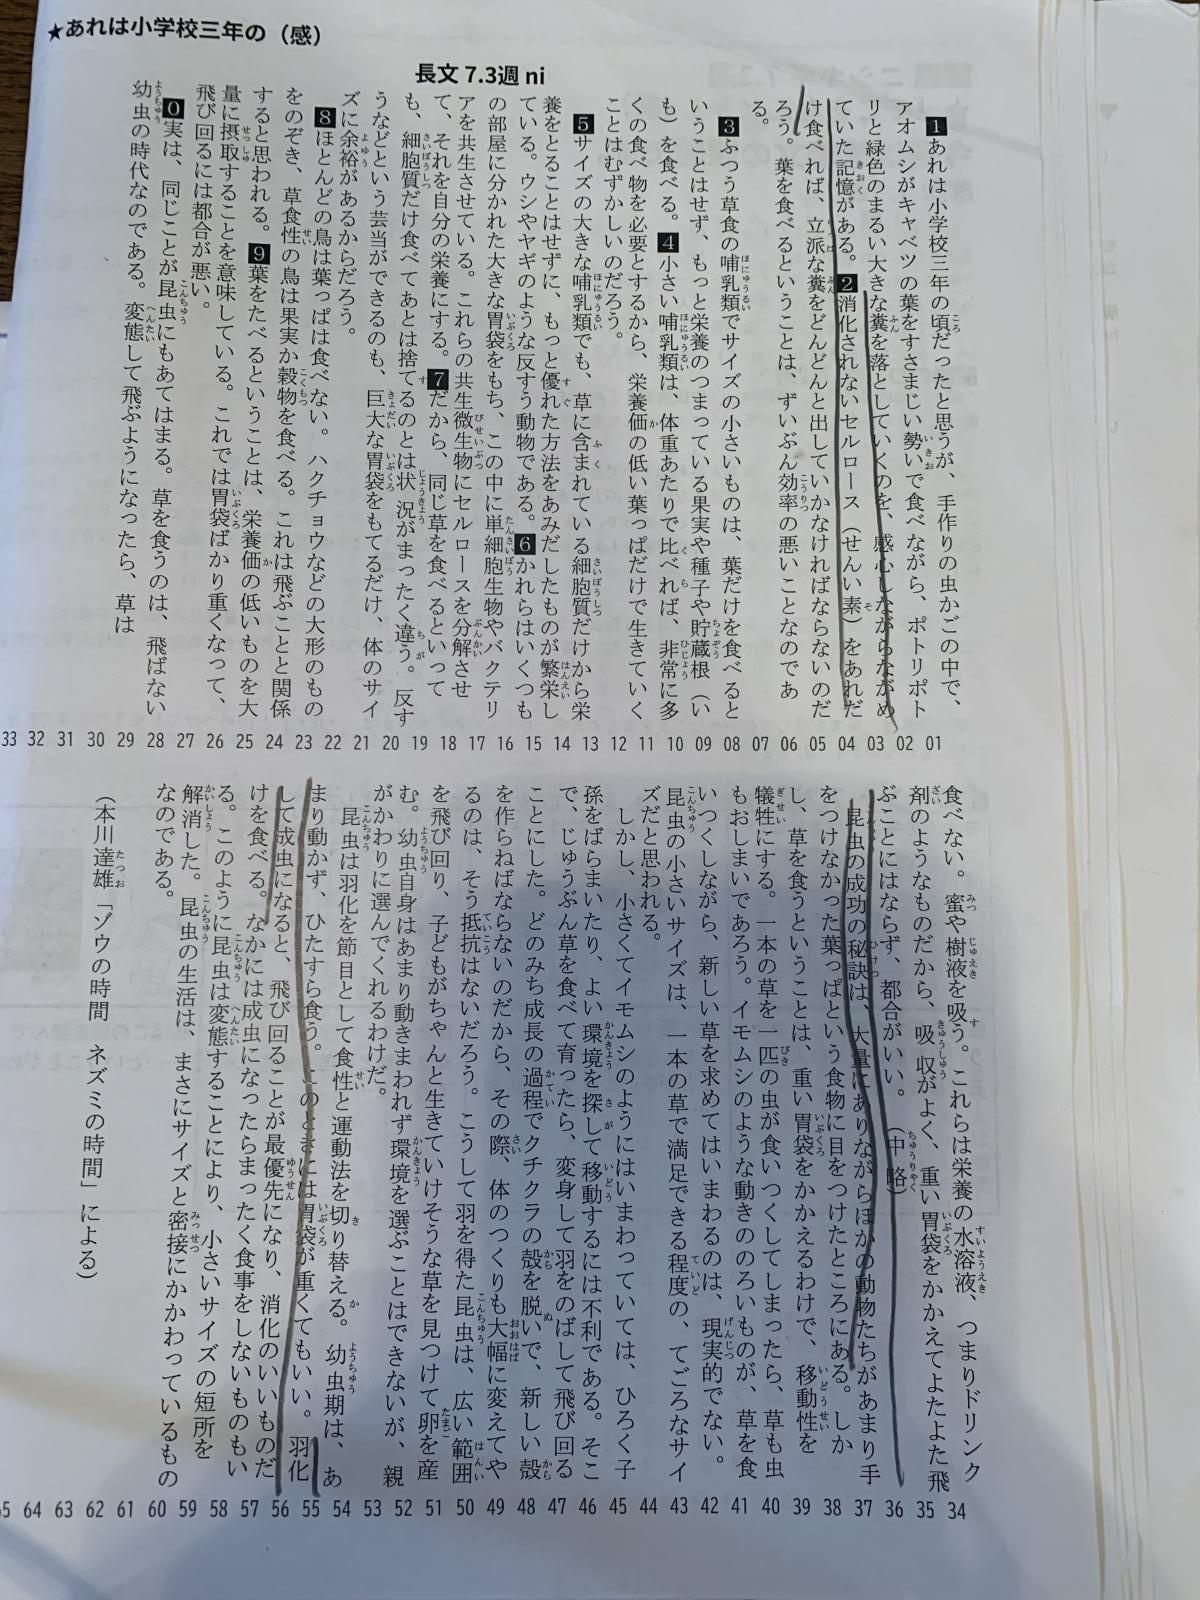 ★あれは小学校三年の（感）
長文 7.3週 ni
１あれは小学校三年の頃だったと思うが、手作りの虫かごの中で、
アオムシがキャベツの葉をすさまじい勢いで食べながら、ポトリポト
リと緑色のまるい大きな糞を落としていくのを、感心しながらながめ
ていた記憶がある。２消化されないセルロース（せんい素）をあれだ
け食べれば、立派な糞をどんどんと出していかなければならないのだ
ろう。葉を食べるということは、ずいぶん効率の悪いことなのであ
る。
３ふつう草食の哺乳類でサイズの小さいものは、葉だけを食べると
いうことはせず、もっと栄養のつまっている果実や種子や貯蔵根（い
も）を食べる。４小さい哺乳類は、体重あたりで比べれば、非常に多
くの食べ物を必要とするから、栄養価の低い葉っぱだけで生きていく
ことはむずかしいのだろう。
５サイズの大きな哺乳類でも、草に含まれている細胞質だけから栄
養をとることはせずに、もっと優れた方法をあみだしたものが繁栄し
ている。ウシやヤギのような反すう動物である。６かれらはいくつも
の部屋に分かれた大きな胃袋をもち、この中に単細胞生物やバクテリ
アを共生させている。これらの共生微生物にセルロースを分解させ
て、それを自分の栄養にする。７だから、同じ草を食べるといって
も、細胞質だけ食べてあとは捨てるのとは状況がまったく違う。反す
うなどという芸当ができるのも、巨大な胃袋をもてるだけ、体のサイ
ズに余裕があるからだろう。
８ほとんどの鳥は葉っぱは食べない。ハクチョウなどの大形のもの
をのぞき、草食性の鳥は果実か穀物を食べる。これは飛ぶことと関係
すると思われる。９葉をたべるということは、栄養価の低いものを大
量に摂取することを意味している。これでは胃袋ばかり重くなって、
飛び回るには都合が悪い。
０実は、同じことが昆虫にもあてはまる。草を食うのは、飛ばない
幼虫の時代なのである。変態して飛ぶようになったら、草は
01 02 03 04 05 06 07 08 09 10 11 12 13 14 15 16 17 18 19 20 21 22 23 24 25 26 27 28 29 30 31 32 33
食べない。蜜や樹液を吸う。これらは栄養の水溶液、つまりドリンク
剤のようなものだから、吸収がよく、重い胃袋をかかえてよたよた飛
ぶことにはならず、都合がいい。（中略）
昆虫の成功の秘訣は、大量にありながらほかの動物たちがあまり手
をつけなかった葉っぱという食物に目をつけたところにある。しか
し、草を食うということは、重い胃袋をかかえるわけで、移動性を
犠牲にする。一本の草を一匹の虫が食いつくしてしまったら、草も虫
もおしまいであろう。イモムシのような動きののろいものが、草を食
いつくしながら、新しい草を求めてはいまわるのは、現実的でない。
昆虫の小さいサイズは、一本の草で満足できる程度の、てごろなサイ
ズだと思われる。
しかし、小さくてイモムシのようにはいまわっていては、ひろく子
孫をばらまいたり、よい環境を探して移動するには不利である。そこ
で、じゅうぶん草を食べて育ったら、変身して羽をのばして飛び回る
ことにした。どのみち成長の過程でクチクラの殻を脱いで、新しい殻
を作らねばならないのだから、その際、体のつくりも大幅に変えてや
るのは、そう抵抗はないだろう。こうして羽を得た昆虫は、広い範囲
を飛び回り、子どもがちゃんと生きていけそうな草を見つけて卵を産
む。幼虫自身はあまり動きまわれず環境を選ぶことはできないが、親
がかわりに選んでくれるわけだ。
昆虫は羽化を節目として食性と運動法を切り替える。幼虫期は、あ
まり動かず、ひたすら食う。このときには胃袋が重くてもいい。羽化
して成虫になると、飛び回ることが最優先になり、消化のいいものだ
けを食べる。なかには成虫になったらまったく食事をしないものもい
る。このように昆虫は変態することにより、小さいサイズの短所を
解消した。昆虫の生活は、まさにサイズと密接にかかわっているもの
なのである。
（本川達雄「ゾウの時間　ネズミの時間」による）
34 35 36 37 38 39 40 41 42 43 44 45 46 47 48 49 50 51 52 53 54 55 56 57 58 59 60 61 62 63 64